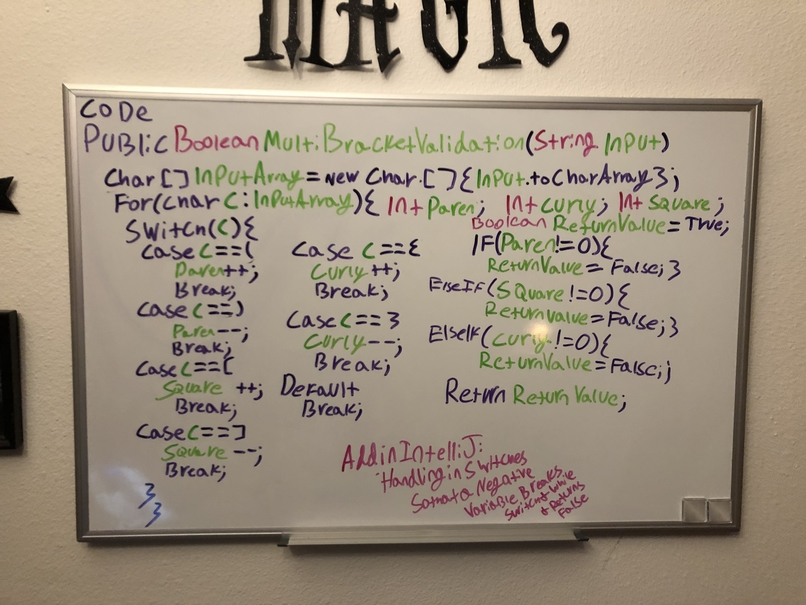 MAGIC
CODE
PUBLIC Boolean MultiBracketValidation(String InPut)
Char[] InPutArray = new Char[]{InPut.toCharArray};
For(char C: InPutArray){ Int Paren; Int Curly; Int Square;
Boolean ReturnValue = True;
Switch(C){
Case C==(
Paren++;
Break;
Case C==)
Paren--;
Break;
Case C==[
Square ++;
Break;
Case C==]
Square --;
Break;
}
}
Case C=={
Curly ++;
Break;
Case C==}
Curly --;
Break;
Default
Break;
IF(Paren!=0){
ReturnValue = False;}
ElseIf(SQuare !=0){
ReturnValue = False;}
ElseIf(curly !=0){
ReturnValue = False;}
Return Return Value;
Add in IntelliJ:
Handling in Switches
So that a Negative
Variable Breaks
Switch + While
+ Returns
False